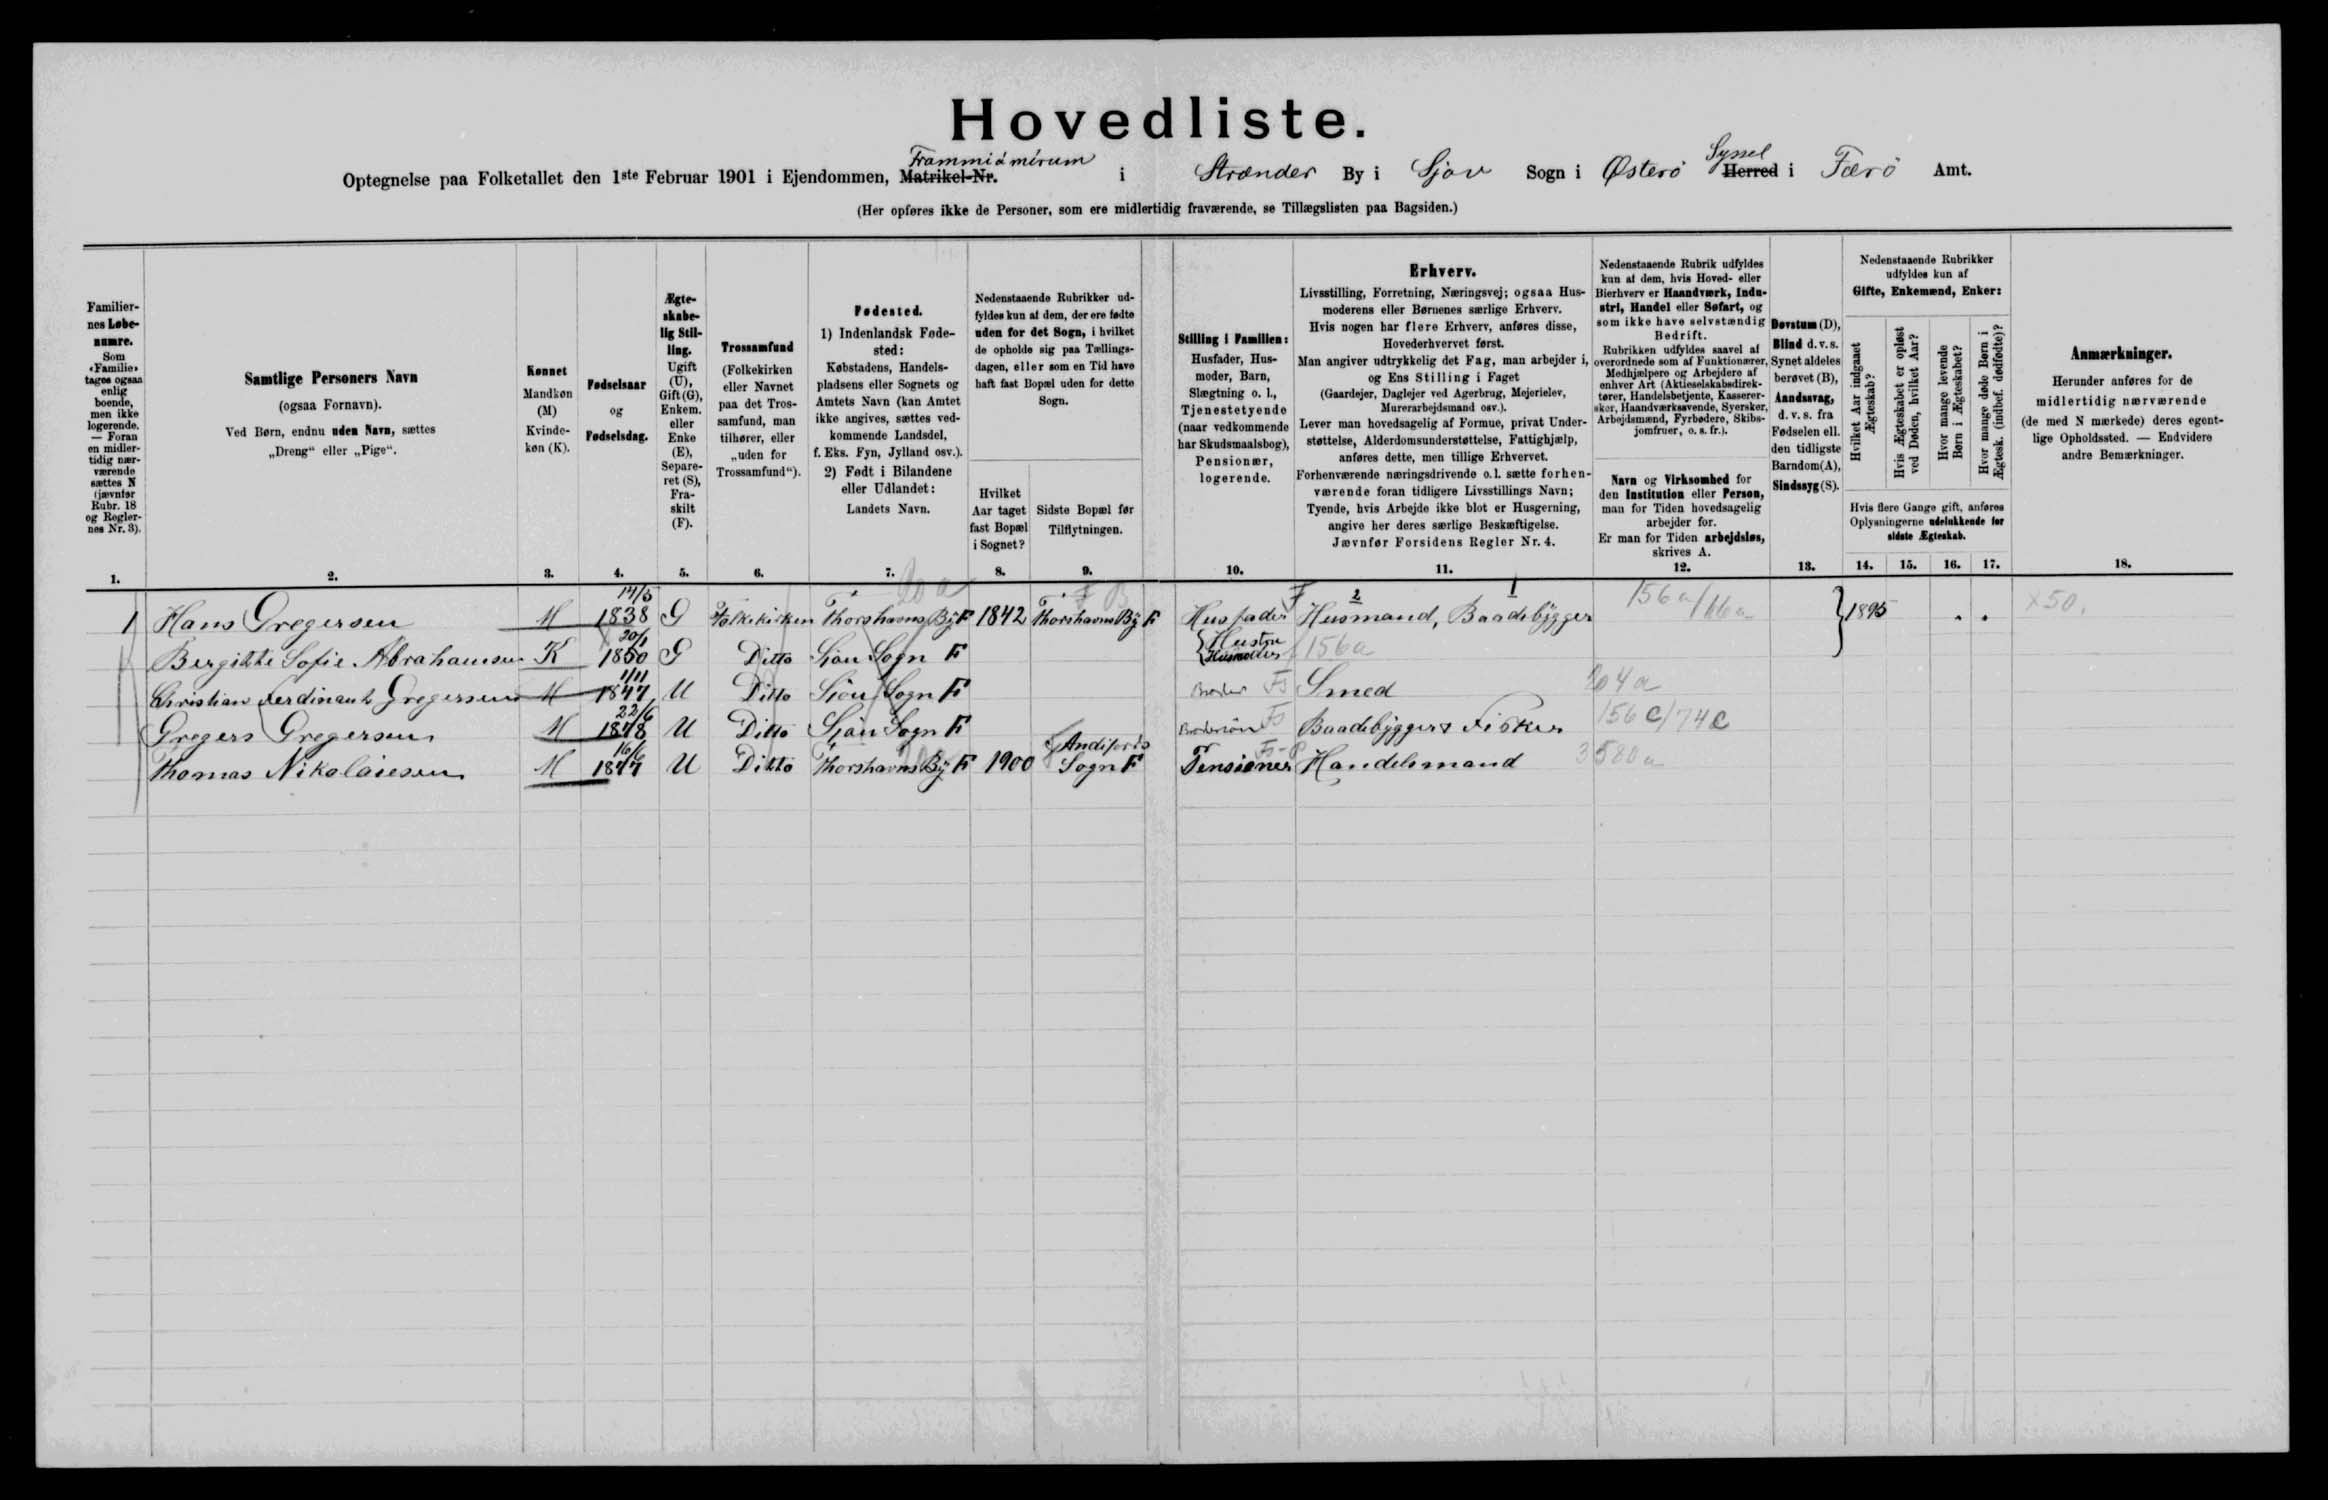 Hovedliste.
Optegnelse paa Folketallet den 1ste Februar 1901 i Ejendommen, Matrikel-Nr. Frammiá mírum i Strænder By i Sjov Sogn i Østerö Herred Syssel i Færö Amt.
(Her opføres ikke de Personer, som ere midlertidig fraværende, se Tillægslisten paa Bagsiden.)
Familier-
nes Løbe-
numre.
Som
«Familie»
tages ogsaa
enlig
boende,
men ikke
logerende.
— Foran
en midler-
tidig nær-
værende
sættes N
(jævnfør
Rubr. 18
og Regler-
nes Nr. 3).
1.
Samtlige Personers Navn
(ogsaa Fornavn).
Ved Børn, endnu uden Navn, sættes
„Dreng“ eller „Pige“.
2.
Kønnet
Mandkøn
(M)
Kvinde-
køn (K).
3.
Fødselsaar
og
Fødselsdag.
4.
Ægte-
skabe-
lig Stil-
ling.
Ugift
(U),
Gift (G),
Enkem.
eller
Enke
(E),
Separe-
ret (S),
Fra-
skilt
(F).
5.
Trossamfund
(Folkekirken
eller Navnet
paa det Tros-
samfund, man
tilhører, eller
„uden for
Trossamfund“).
6.
Fødested.
1) Indenlandsk Føde-
sted:
Købstadens, Handels-
pladsens eller Sognets og
Amtets Navn (kan Amtet
ikke angives, sættes ved-
kommende Landsdel,
f. Eks. Fyn, Jylland osv.).
2) Født i Bilandene
eller Udlandet:
Landets Navn.
7.
Nedenstaaende Rubrikker ud-
fyldes kun af dem, der ere fødte
uden for det Sogn, i hvilket
de opholde sig paa Tællings-
dagen, eller som en Tid have
haft fast Bopæl uden for dette
Sogn.
Hvilket
Aar taget
fast Bopæl
i Sognet?
8.
Sidste Bopæl før
Tilflytningen.
9.
Stilling i Familien:
Husfader, Hus-
moder, Barn,
Slægtning o. l.,
Tjenestetyende
(naar vedkommende
har Skudsmaalsbog),
Pensionær,
logerende.
10.
Erhverv.
Livsstilling, Forretning, Næringsvej; ogsaa Hus-
moderens eller Børnenes særlige Erhverv.
Hvis nogen har flere Erhverv, anføres disse,
Hovederhvervet først.
Man angiver udtrykkelig det Fag, man arbejder i,
og Ens Stilling i Faget
(Gaardejer, Daglejer ved Agerbrug, Mejerielev,
Murerarbejdsmand osv.).
Lever man hovedsagelig af Formue, privat Under-
støttelse, Alderdomsunderstøttelse, Fattighjælp,
anføres dette, men tillige Erhvervet.
Forhenværende næringsdrivende o. l. sætte forhen-
værende foran tidligere Livsstillings Navn;
Tyende, hvis Arbejde ikke blot er Husgerning,
angive her deres særlige Beskæftigelse.
Jævnfør Forsidens Regler Nr. 4.
11.
Nedenstaaende Rubrik udfyldes
kun af dem, hvis Hoved- eller
Bierhverv er Haandværk, Indu-
stri, Handel eller Søfart, og
som ikke have selvstændig
Bedrift.
Rubrikken udfyldes saavel af
overordnede som af Funktionærer,
Medhjælpere og Arbejdere af
enhver Art (Aktieselskabsdirek-
tører, Handelsbetjente, Kasserer-
sker, Haandværkssvende, Syersker,
Arbejdsmænd, Fyrbødere, Skibs-
jomfruer, o. s. fr.).
Navn og Virksomhed for
den Institution eller Person,
man for Tiden hovedsagelig
arbejder for.
Er man for Tiden arbejdsløs,
skrives A.
12.
Døvstum (D),
Blind d. v. s.
Synet aldeles
berøvet (B),
Aandssvag,
d. v. s. fra
Fødselen ell.
den tidligste
Barndom (A),
Sindssyg (S).
13.
Nedenstaaende Rubrikker
udfyldes kun af
Gifte, Enkemænd, Enker:
Hvilket Aar indgaaet
Ægteskab?
Hvis Ægteskabet er opløst
ved Døden, hvilket Aar?
Hvor mange levende
Børn i Ægteskabet?
Hvor mange døde Børn i
Ægtesk. (indbef. dødfødte)?
Hvis flere Gange gift, anføres
Oplysningerne udelukkende for
sidste Ægteskab.
14. 15. 16. 17.
Anmærkninger.
Herunder anføres for de
midlertidig nærværende
(de med N mærkede) deres egent-
lige Opholdssted. — Endvidere
andre Bemærkninger.
18.
1 Hans Gregersen M 14/5 1838 G Folkekirken Thorshavns By F 1842 Thorshavns By F Husfader Husmand, Baadebygger 156a/66a 1895 . . x50.
Bergitte Sofie Abrahamsen K 20/1 1850 G Ditto Sjov Sogn F Hustru Husmoder 156a
Christian Ferdinant Gregersen M 1/11 1847 U Ditto Sjov Sogn F Broder Fs Smed 204a
Gregers Gregersen M 22/6 1878 U Ditto Sjov Sogn F Brodersön Fs Baadebyggers Fisker 156c/74c
Thomas Nikolaiesen M 16/6 1877 U Ditto Thorshavns By F 1900 Andifjords Sogn F Pensioner Fs-P Handelsmand 580a